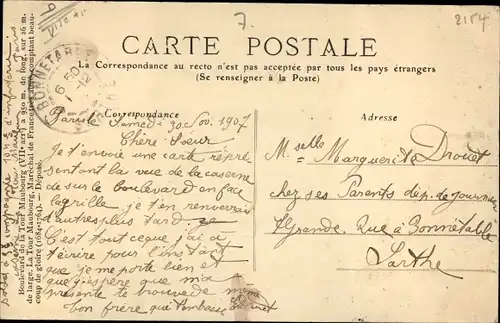 7.
2154
CARTE POSTALE
La Correspondance au recto n'est pas acceptée par tous les pays étrangers
(Se renseigner à la Poste)
BONNETABLE
6 50
1-12
Correspondance
Paris Samedi 30 Nov. 1907
Chère Sœur
Je t'envoie une carte repré
sentant la vue de la caserne
de sur le boulevard en face
la grille je t'en renverrai
d'autres plus tard
C'est tout ce que j'ai a
t'écrire pour l'instant
que je me porte bien et
que j'espère que ma
présente te trouve de même
Ton frère que t'embrasse
Adresse
Mselle Marguerite Drouet
chez ses Parents
Grande Rue à Bonnétable
Sarthe
Boulevard de la Tour Maubourg (VIIe arrt) a 950 m. de long. sur 26 m.
de large. La Tour Maubourg, Maréchal de France, tout en comptant beau-
coup de gloire (1684-1764). — Déposé